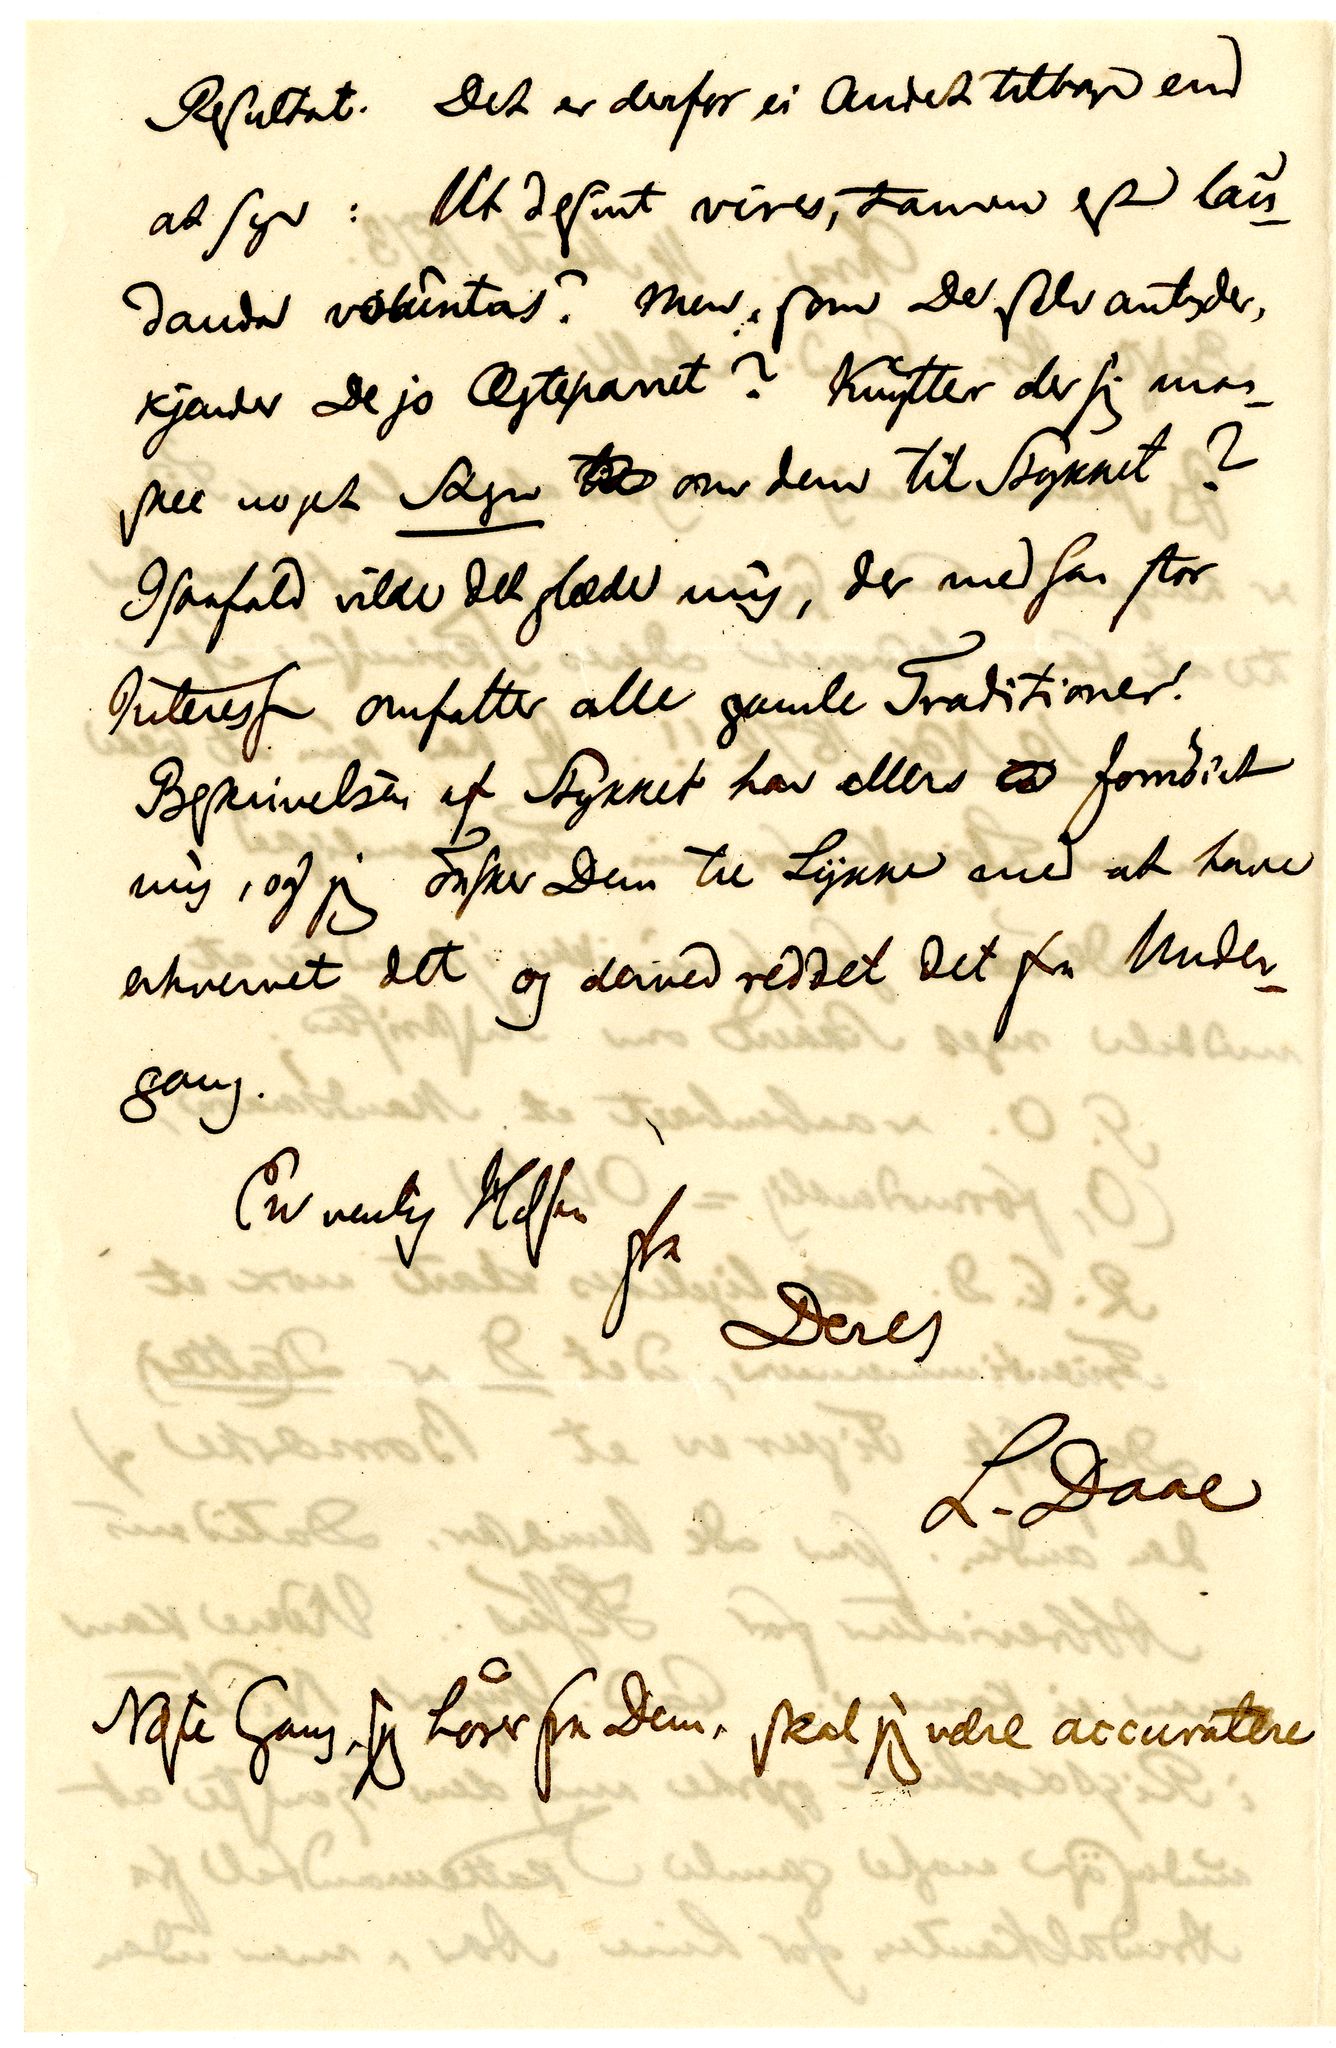 Resultat. Det er derfor ei Andet tilbage end
at sige: Ut desint vires, tamen est lau-
danda voluntas? Men, som De selv antyder,
kjender De jo Ægteparret? Knytter der sig maa-
skee noget Sagn om dem til Stykket?
Isaafald vilde det glæde mig, der med saa stor
Interesse omfatter alle gamle Traditioner.
Beskrivelsen af Stykket har ellers fornöiet
mig, og jeg önsker Dem til Lykke med at have
erhvervet det og derved reddet det fra Under-
gang.
En venlig Hilsen
fra
Deres
L. Daae
Næste Gang, jeg hörer fra Dem, skal jeg være accuratere